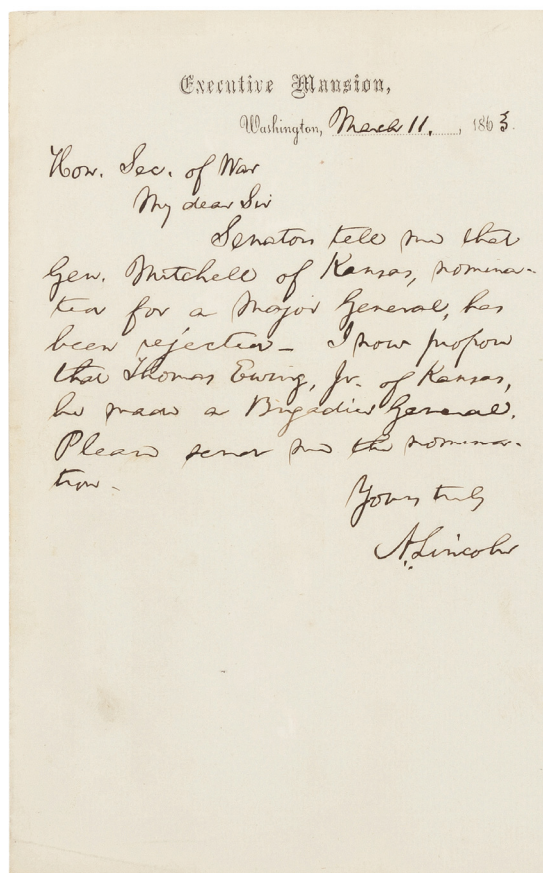 Executive Mansion,
Washington, March 11, 1863.
Hon. Sec. of War
My dear Sir
Senators tell me that
Gen. Mitchell of Kansas, nomina-
ted for a Major General, has
been rejected— I now propose
that Thomas Ewing, Jr. of Kansas,
be made a Brigadier General.
Please send me the nomina-
tion-
Yours truly
A. Lincoln